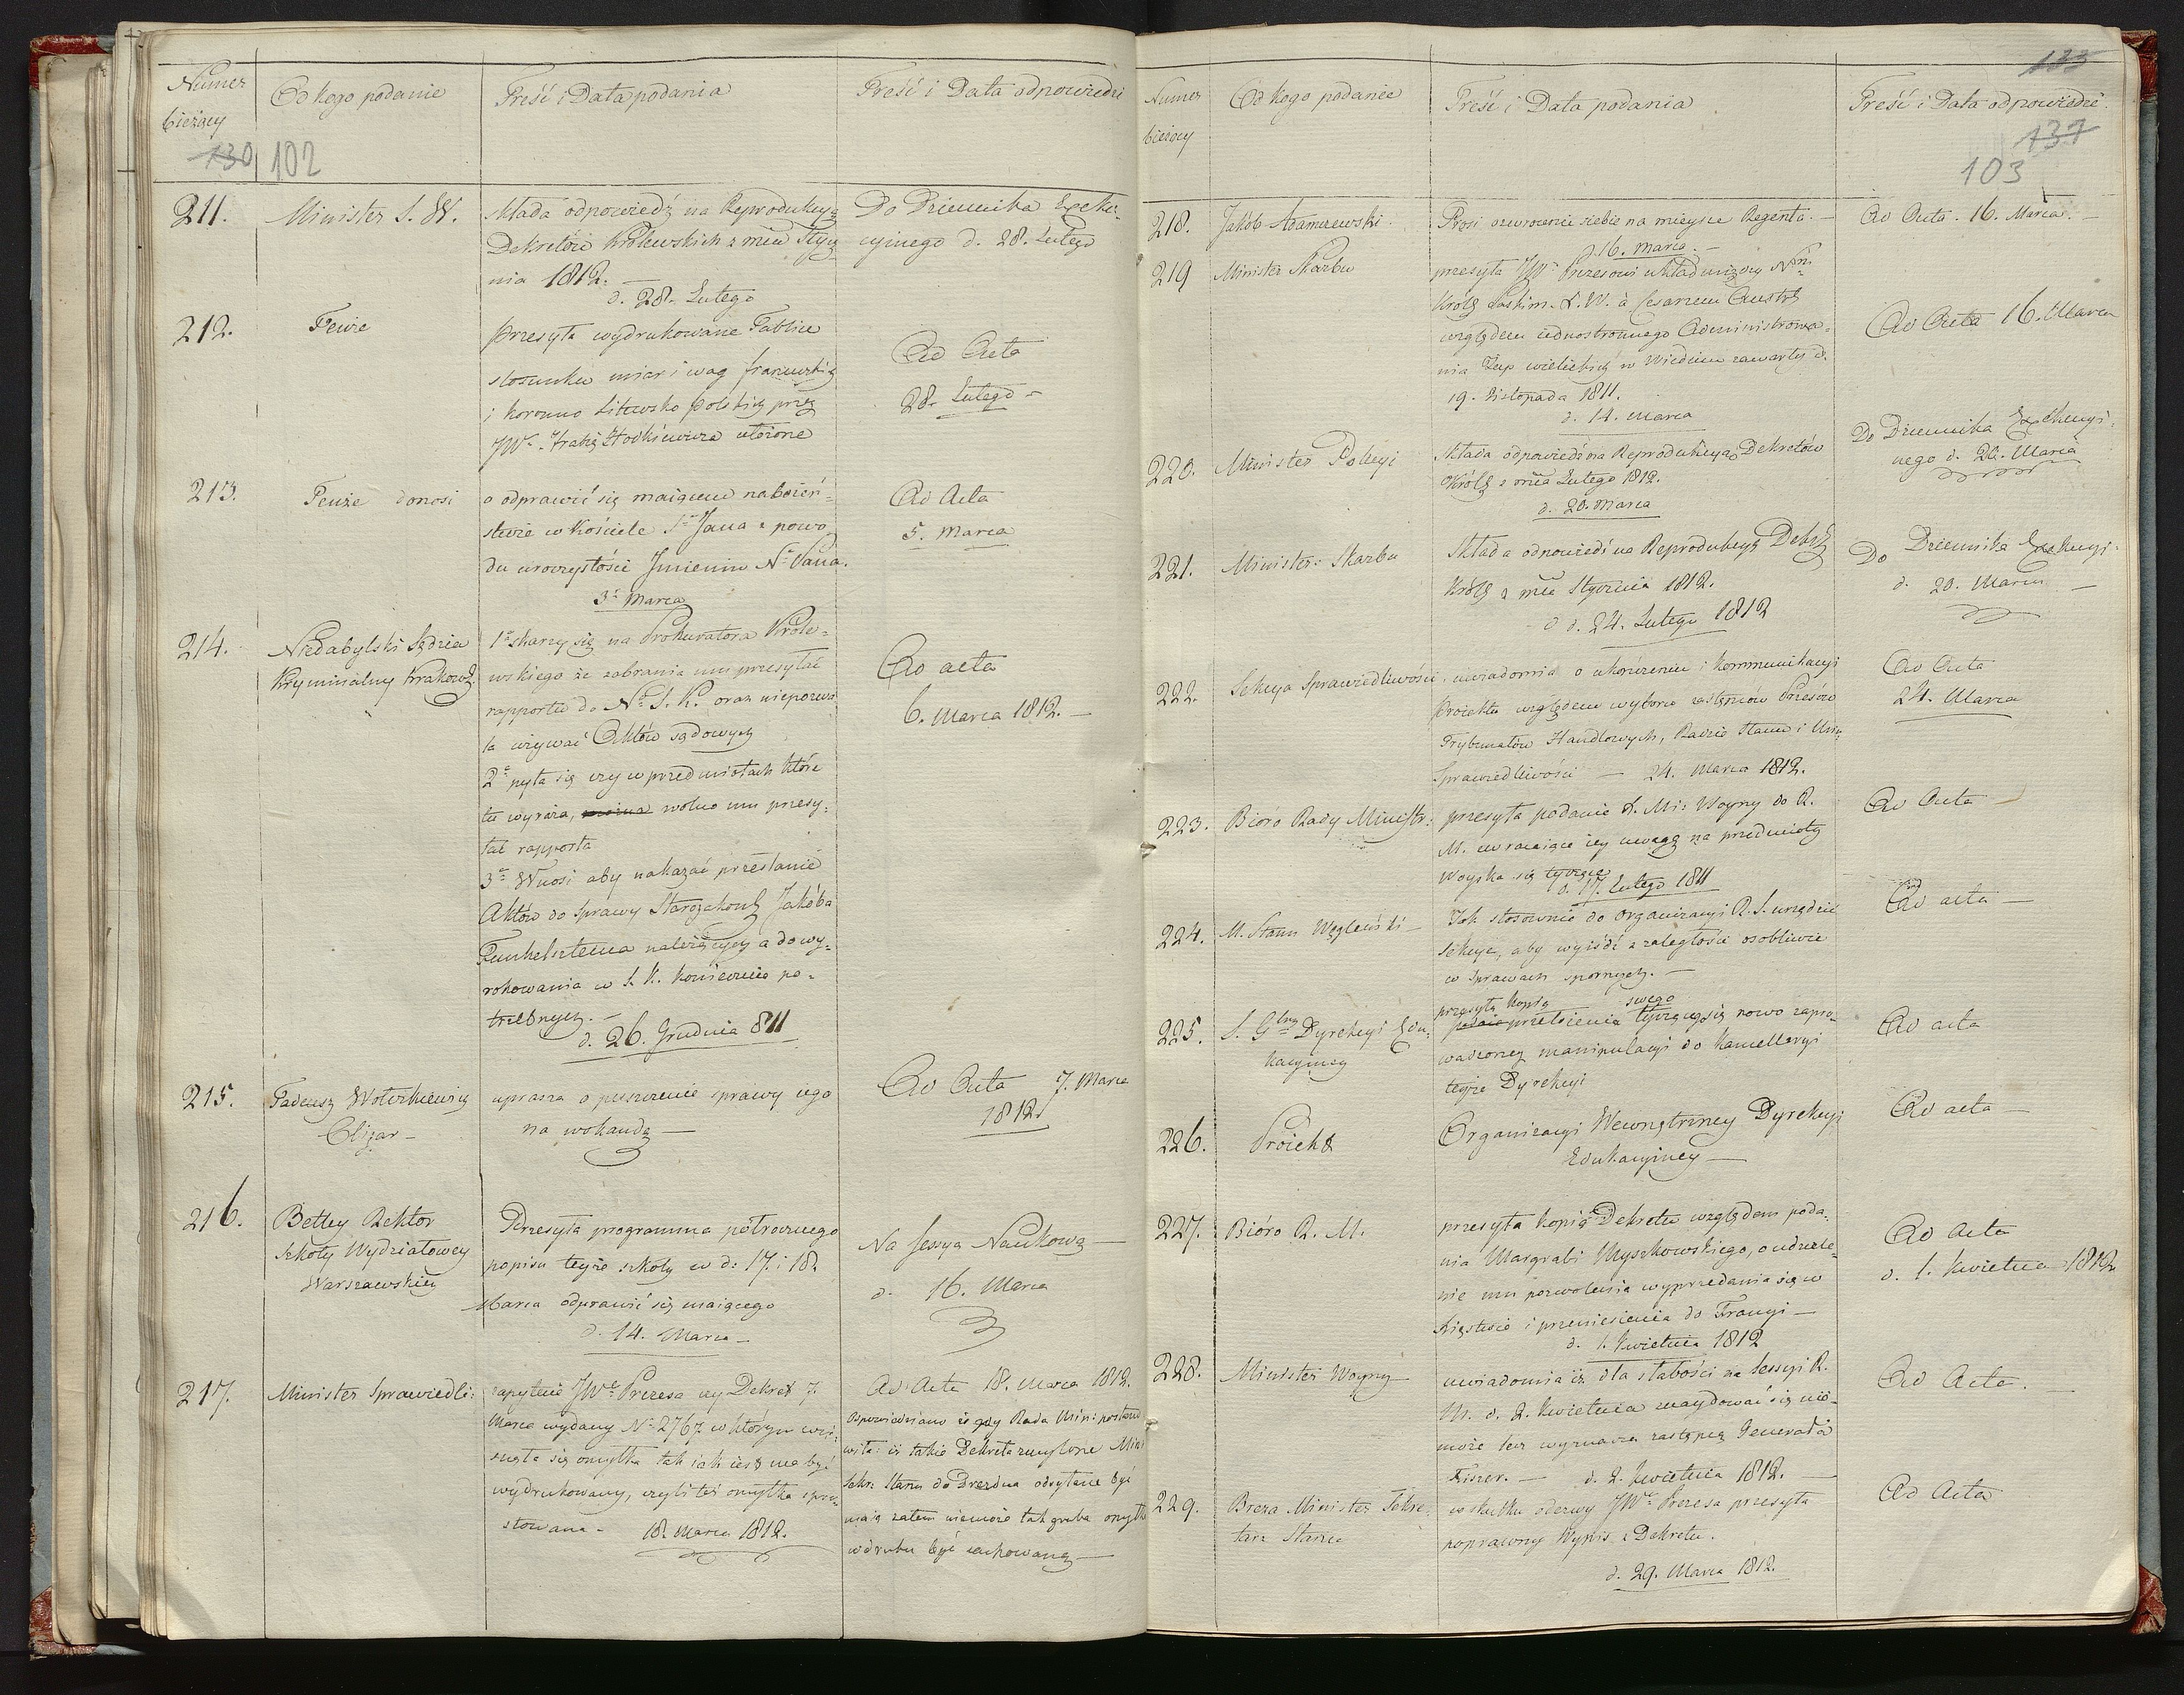 Numer
bieżący
Od kogo podanie
Treść i Data podania
Treść i Data odpowiedzi
130 102
211.
Minister S. W.
składa odpowiedź na Reprodukcyą
Dekretów Królewskich z mca Stycz
nia 1812.
d. 28. Lutego
Do Dziennika Exeku-
cyinego d. 28. Lutego
212.
Tenże
przesyła wydrukowane Tablice
stosunku miar i wag francuzkich
i koronno Litewsko polskich przez
JW. Hrabię Hodkiewicza ułożone
Ad Acta
28. Lutego
213.
Tenże donosi
o odprawić się maiącem nabożeń-
stwie w Kościele S. Jana z powo
du uroczystości Jmienin N. Pana.
3. Marca
Ad Acta
5. Marca
214.
Niedabylski Sędzia
Kryminalny Krakow.
1. skarzy się na Prokuratora Króle-
wskiego że zabrania mu przesyłać
rapportu do N. S. K. oraz niepozwa
la używać Aktów sądowych
2. pyta się czy w przedmiotach które
tu wyraża, wolno mu przesy-
łać rapporta
3. Wnosi aby nakazać przesłanie
Aktów do Sprawy Starozakon. Jakóba
Funkelszteina należących a do wy-
rokowania w S. K. koniecznie po-
trzebnych.
d. 26. Grudnia 811
Ad acta
6. Marca 1812.
215.
Tadeusz Wołczkiewicz
Olizar
uprasza o puszczenie sprawy iego
na wokandę
Ad Acta 7. Marca
1812.
216.
Bettey Rektor
szkoły Wydziałowey
Warszawskiey
Przesyła programma półrocznego
popisu teyże szkoły w d. 17. i 18.
Marca odprawić się maiącego
d. 14. Marca
Na Sessyą Naukową
d. 16. Marca
217.
Minister Sprawiedli:
zapytanie JW. Prezesa czy Dekret 7.
Marca wydany N. 2767 w którym wci-
snęła się omyłka tak iak iest ma być
wydrukowany, czyli też omyłka spro-
stowana. 18. Marca 1812.
Ad Acta 18. Marca 1812.
Odpowiedziano iż gdy Rada Min: postano
wiła: iż takie Dekreta zmylone Mini
Sekr: Stanu do Drezdna odsyłane być
maią zatem niemoże tak gruba omyłk
w druku być zachowaną
133
Numer
bieżący
Od kogo podanie
Treść i Data podania
Treść i Data odpowiedzi.
137
103
218.
Jakób Adamczewski
Prosi o zwrocenie siebie na mieysce Regenta.
d. 16. Marca
Ad Acta. 16. Marca.
219
Minister Skarbu
przesyła JW. Prezesowi układ między N.
Królem Saskim X. W. a Cesarzem Austr.
względem iednostronnego Administrowa-
nia Żup wielickich w Wiedniu zawarty d.
19. Listopada 1811.
d. 14. Marca
Ad Acta 16. Marca
220.
Minister Policyi
składa odpowiedź na Reprodukcyą Dekretów
Król. z mca Lutego 1812.
d. 20. Marca
Do Dziennika Exekucyi-
nego d. 20. Marca
221.
Minister Skarbu
składa odpowiedź na Reprodukcyą Dekr.
Król. z mca Stycznia 1812.
d. 24. Lutego 1812
Do Dziennika Exekucyi-
d. 20. Marca
222.
Sekcya Sprawiedliwości
uwiadomia o ukończeniu i kommunikacyi
Proiektu względem wyboru zastępców Prezesów
Trybunałów Handlowych, Radzie Stanu i Min.
Sprawiedliwości — 24. Marca 1812.
Ad Acta
24. Marca
223.
Bióro Rady Ministr:
przesyła podanie X. Mi: Woyny do R.
M. zwracaiące iey uwagę na przedmioty
Woyska się tyczące
d. 17. Lutego 1811
Ad Acta
224.
M. Stanu Węgleński
Jak stosownie do organizacyi R. S. urządzić
Sekcye, aby wyiść z zaległości osobliwie
w Sprawach spornych.
Ad acta
225.
S. Glny Dyrekcyi Edu-
kacyiney
przesyła kopią swego
przełożenia tyczącego się nowo zapro-
wadzoney manipulacyi do Kancellaryi
teyże Dyrekcyi
Ad acta
226.
Proiekt
Organizacyi Wewnętrzney Dyrekcyi
Edukacyiney
Ad acta
227.
Bióro R. M.
przesyła kopią Dekretu względem poda-
nia Margrabi Myszkowskiego, o udziele-
nie mu pozwolenia wyprzedania się w
Xięstwie i przeniesienia do Francyi
d. 1. Kwietnia 1812
Ad acta
d. 1. Kwietnia 1812
228.
Minister Woyny
uwiadomia iż dla słabości na Sessyi R.
M. d. 2. Kwietnia znaydować się nie-
może lecz wyznacza zastępcą Generała
Fiszer. — d. 2. Kwietnia 1812.
Ad Acta.
229.
Breza Minister Sekre-
tarz Stanu
w skutku odezwy JW. Prezesa przesyła
poprawny Wypis z Dekretu.
d. 29. Marca 1812.
Ad Acta